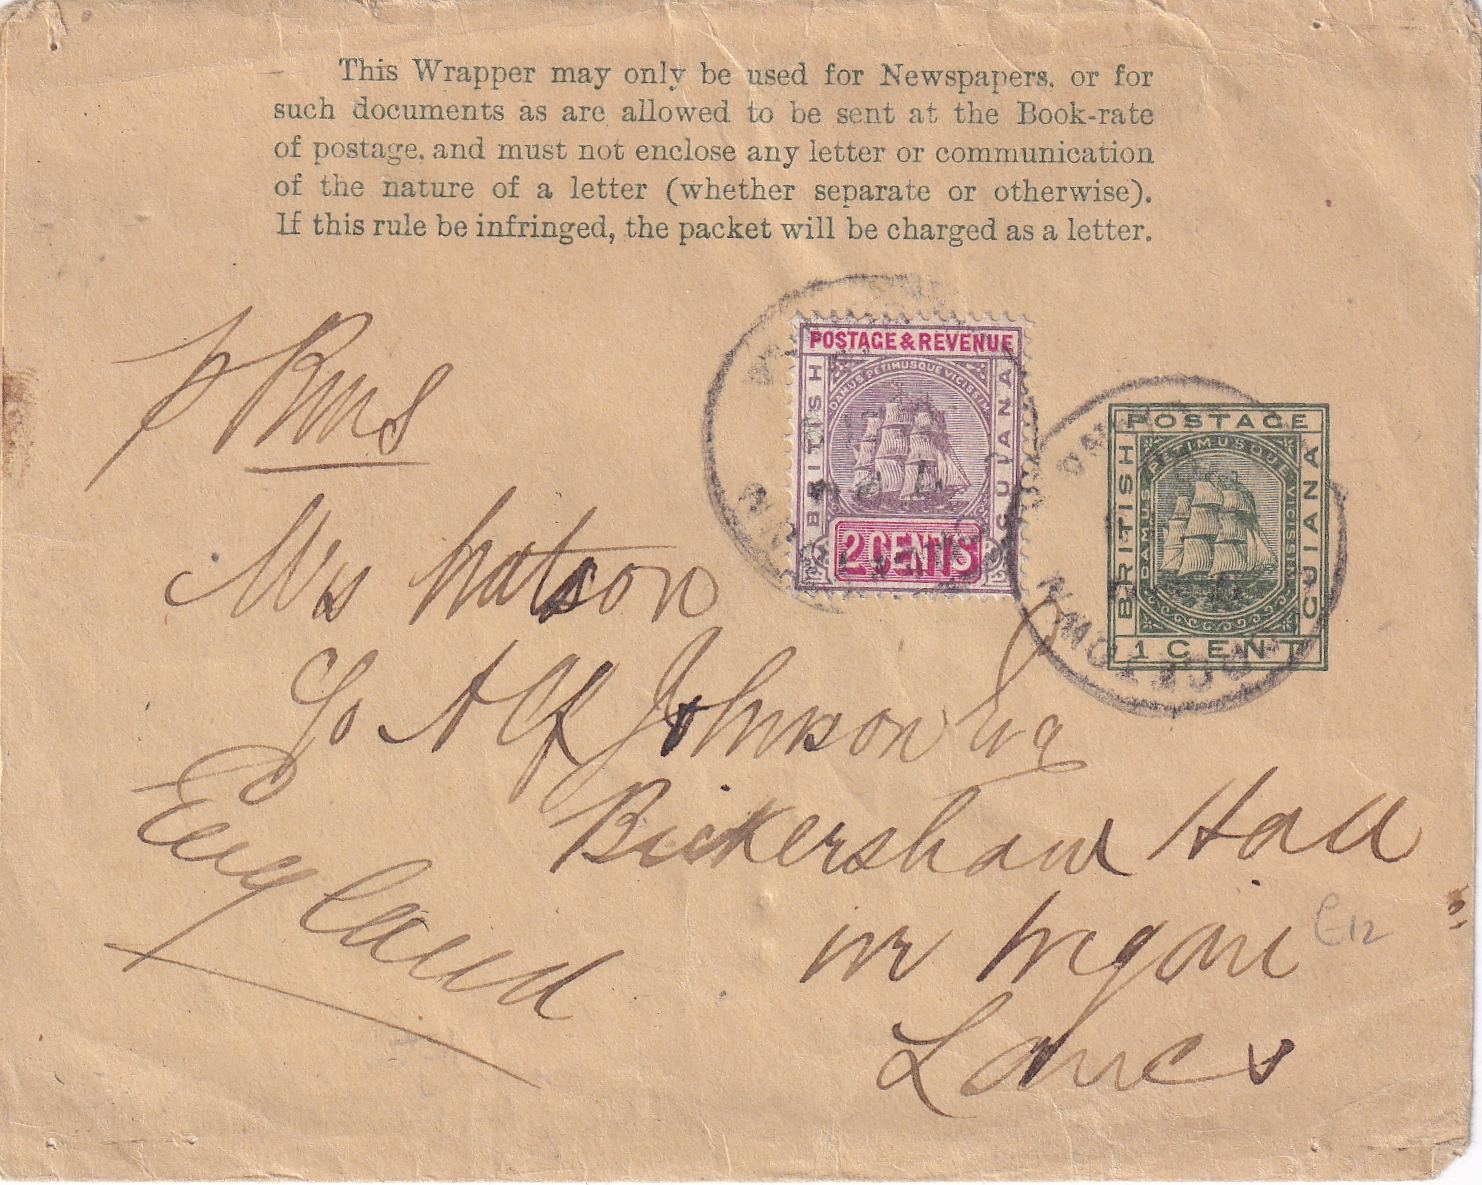 This Wrapper may only be used for Newspapers. or for
such documents as are allowed to be sent at the Book-rate
of postage, and must not enclose any letter or communication
of the nature of a letter (whether separate or otherwise).
If this rule be infringed, the packet will be charged as a letter.
POSTAGE & REVENUE
BRITISH
GUIANA
DAMUS PETIMUSQUE VICISSIM
2 CENTS
POSTAGE
BRITISH
GUIANA
DAMUS PETIMUSQUE VICISSIM
1 CENT
p Rms
Mrs Watson
c/o Alf Johnson Esq
Bickershaw Hall
nr Wigan
Lancs
England
£12